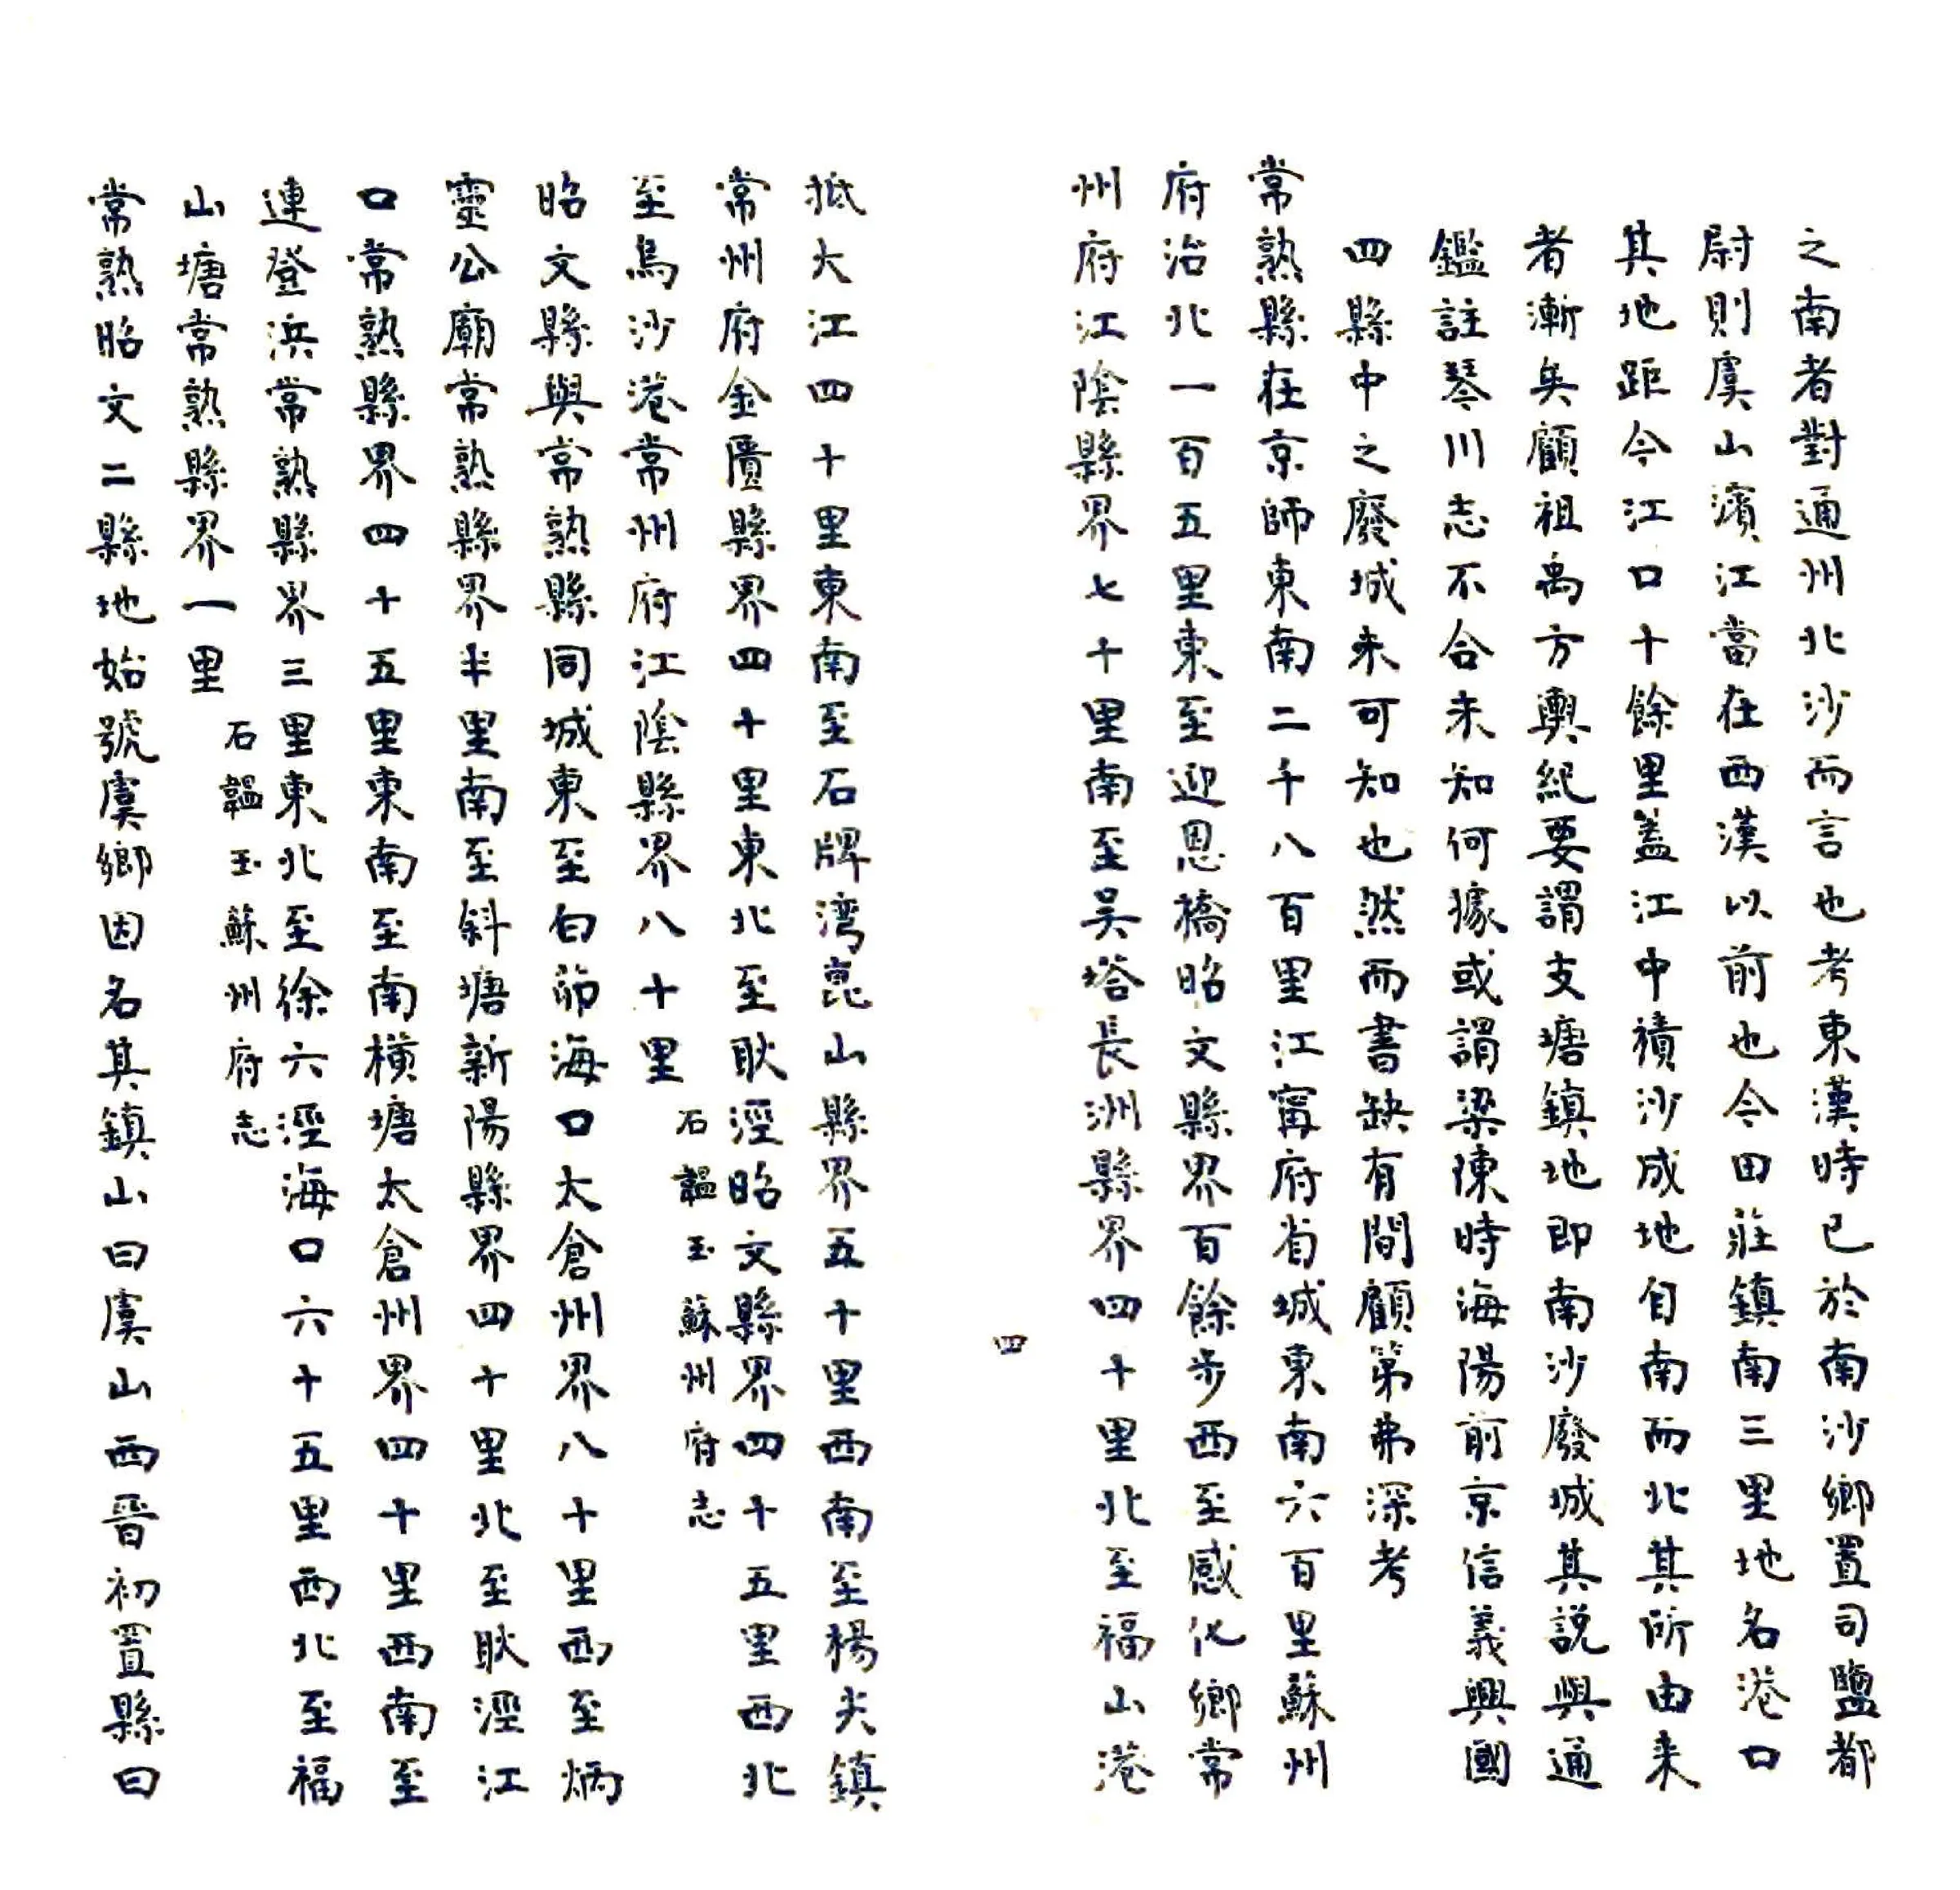 之南者對通州北沙而言也考東漢時已於南沙鄉置司鹽都
尉則虞山濱江當在西漢以前也今田莊鎮南三里地名港口
其地距今江口十餘里蓋江中積沙成地自南而北其所由来
者漸矣顧祖禹方輿紀要謂支塘鎮地即南沙廢城其說與通
鑑註琴川志不合未知何據或謂梁陳時海陽前京信義興國
四縣中之廢城未可知也然而書缺有間顧第弗深考
常熟縣在京師東南二千八百里江甯府省城東南六百里蘇州
府治北一百五里東至迎恩橋昭文縣界百餘步西至感化鄉常
州府江陰縣界七十里南至吴塔長洲縣界四十里北至福山港
四
抵大江四十里東南至石牌湾崑山縣界五十里西南至楊尖鎮
常州府金匱縣界四十里東北至耿涇昭文縣界四十五里西北
至烏沙港常州府江陰縣界八十里
石韞玉蘇州府志
昭文縣與常熟縣同城東至白茆海口太倉州界八十里西至炳
靈公廟常熟縣界半里南至斜塘新陽縣界四十里北至耿涇江
口常熟縣界四十五里東南至南橫塘太倉州界四十里西南至
連登浜常熟縣界三里東北至徐六涇海口六十五里西北至福
山塘常熟縣界一里
石韞玉蘇州府志
常熟昭文二縣地始號虞鄉因名其鎮山曰虞山西晉初置縣曰